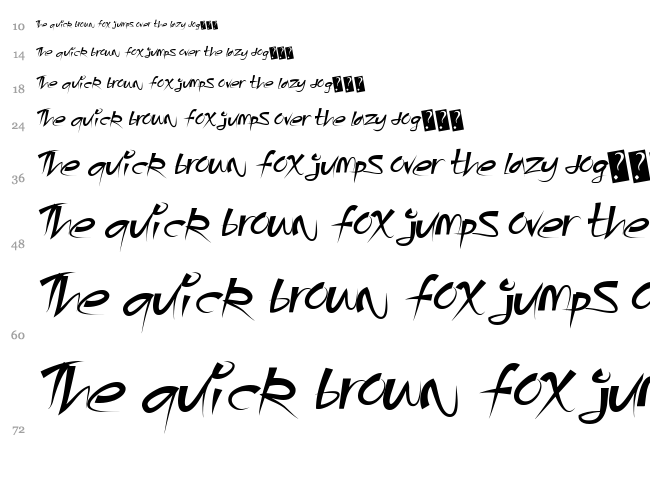 10 The quick brown fox jumps over the lazy dog???
14 The quick brown fox jumps over the lazy dog???
18 The quick brown fox jumps over the lazy dog???
24 The quick brown fox jumps over the lazy dog???
36 The quick brown fox jumps over the lazy dog???
48 The quick brown fox jumps over the
60 The quick brown fox jumps o
72 The quick brown fox jum